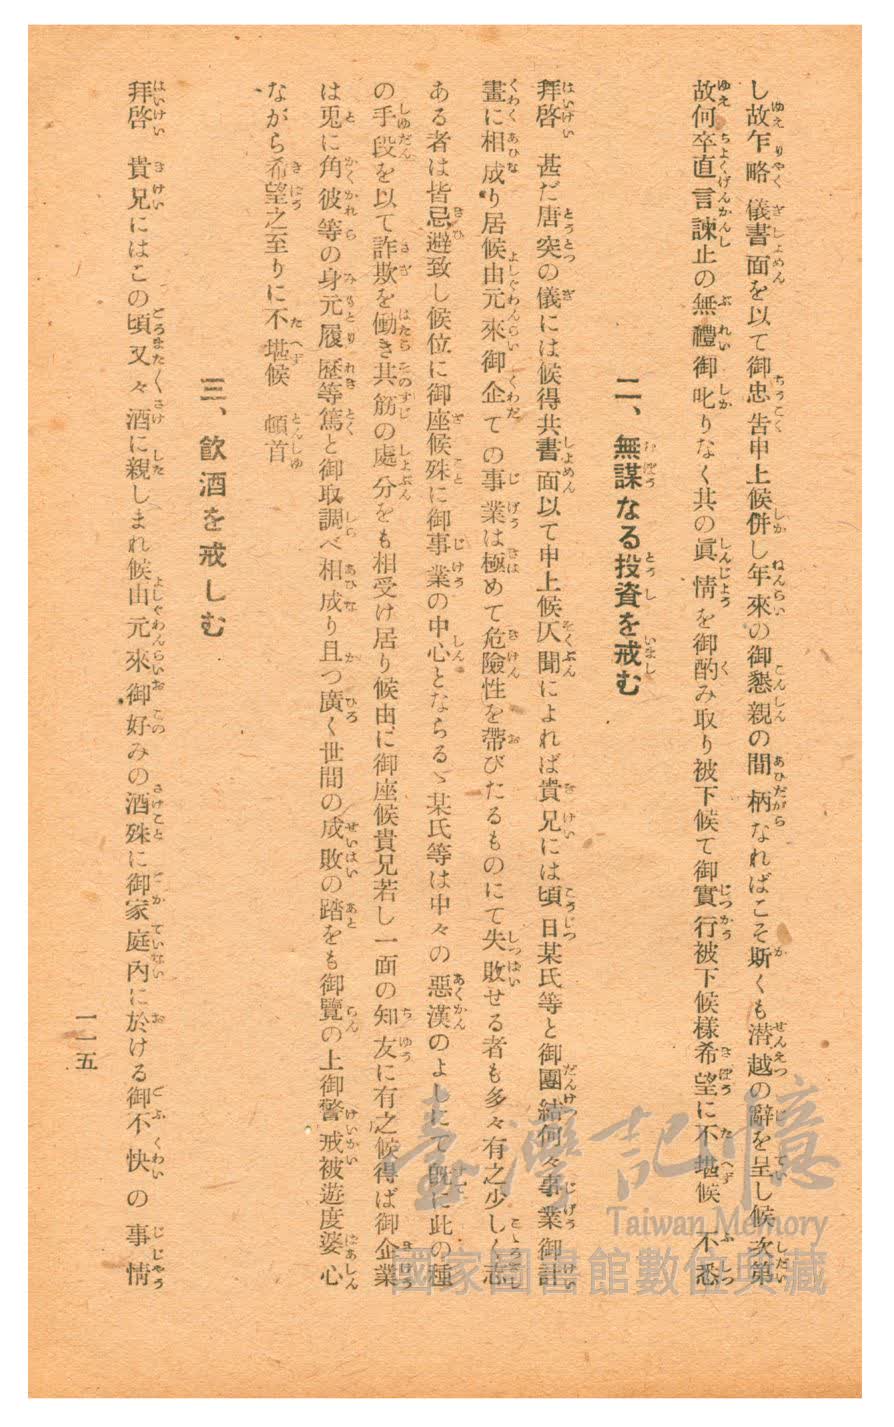 し故乍略儀書面を以て御忠告申上候併し年來の御懇親の間柄なればこそ斯くも潜越の辭を呈し候次第
故何卒直言諫止の無禮御叱りなく其の眞情を御酌み取り被下候て御實行被下候樣希望に不堪候　不悉
二、無謀なる投資を戒む
拜啓　甚だ唐突の儀には候得共書面以て申上候仄聞によれば貴兄には頃日某氏等と御團結何々事業御計
畫に相成り居候由元來御企ての事業は極めて危險性を帶びたるものにて失敗せる者も多々有之少しく志
ある者は皆忌避致し候位に御座候殊に御事業の中心とならるゝ某氏等は中々の惡漢のよしにて既に此の種
の手段を以て詐欺を働き其筋の處分をも相受け居り候由に御座候貴兄若し一面の知友に有之候得ば御企業
は兎に角彼等の身元履歷等篤と御取調べ相成り且つ廣く世間の成敗の踏をも御覽の上御警戒被遊度婆心
ながら希望之至りに不堪候　頓首
三、飮酒を戒しむ
拜啓　貴兄にはこの頃又々酒に親しまれ候由元來御好みの酒殊に御家庭内に於ける御不快の事情
一一五
臺灣記憶
Taiwan Memory
國家圖書館數位典藏